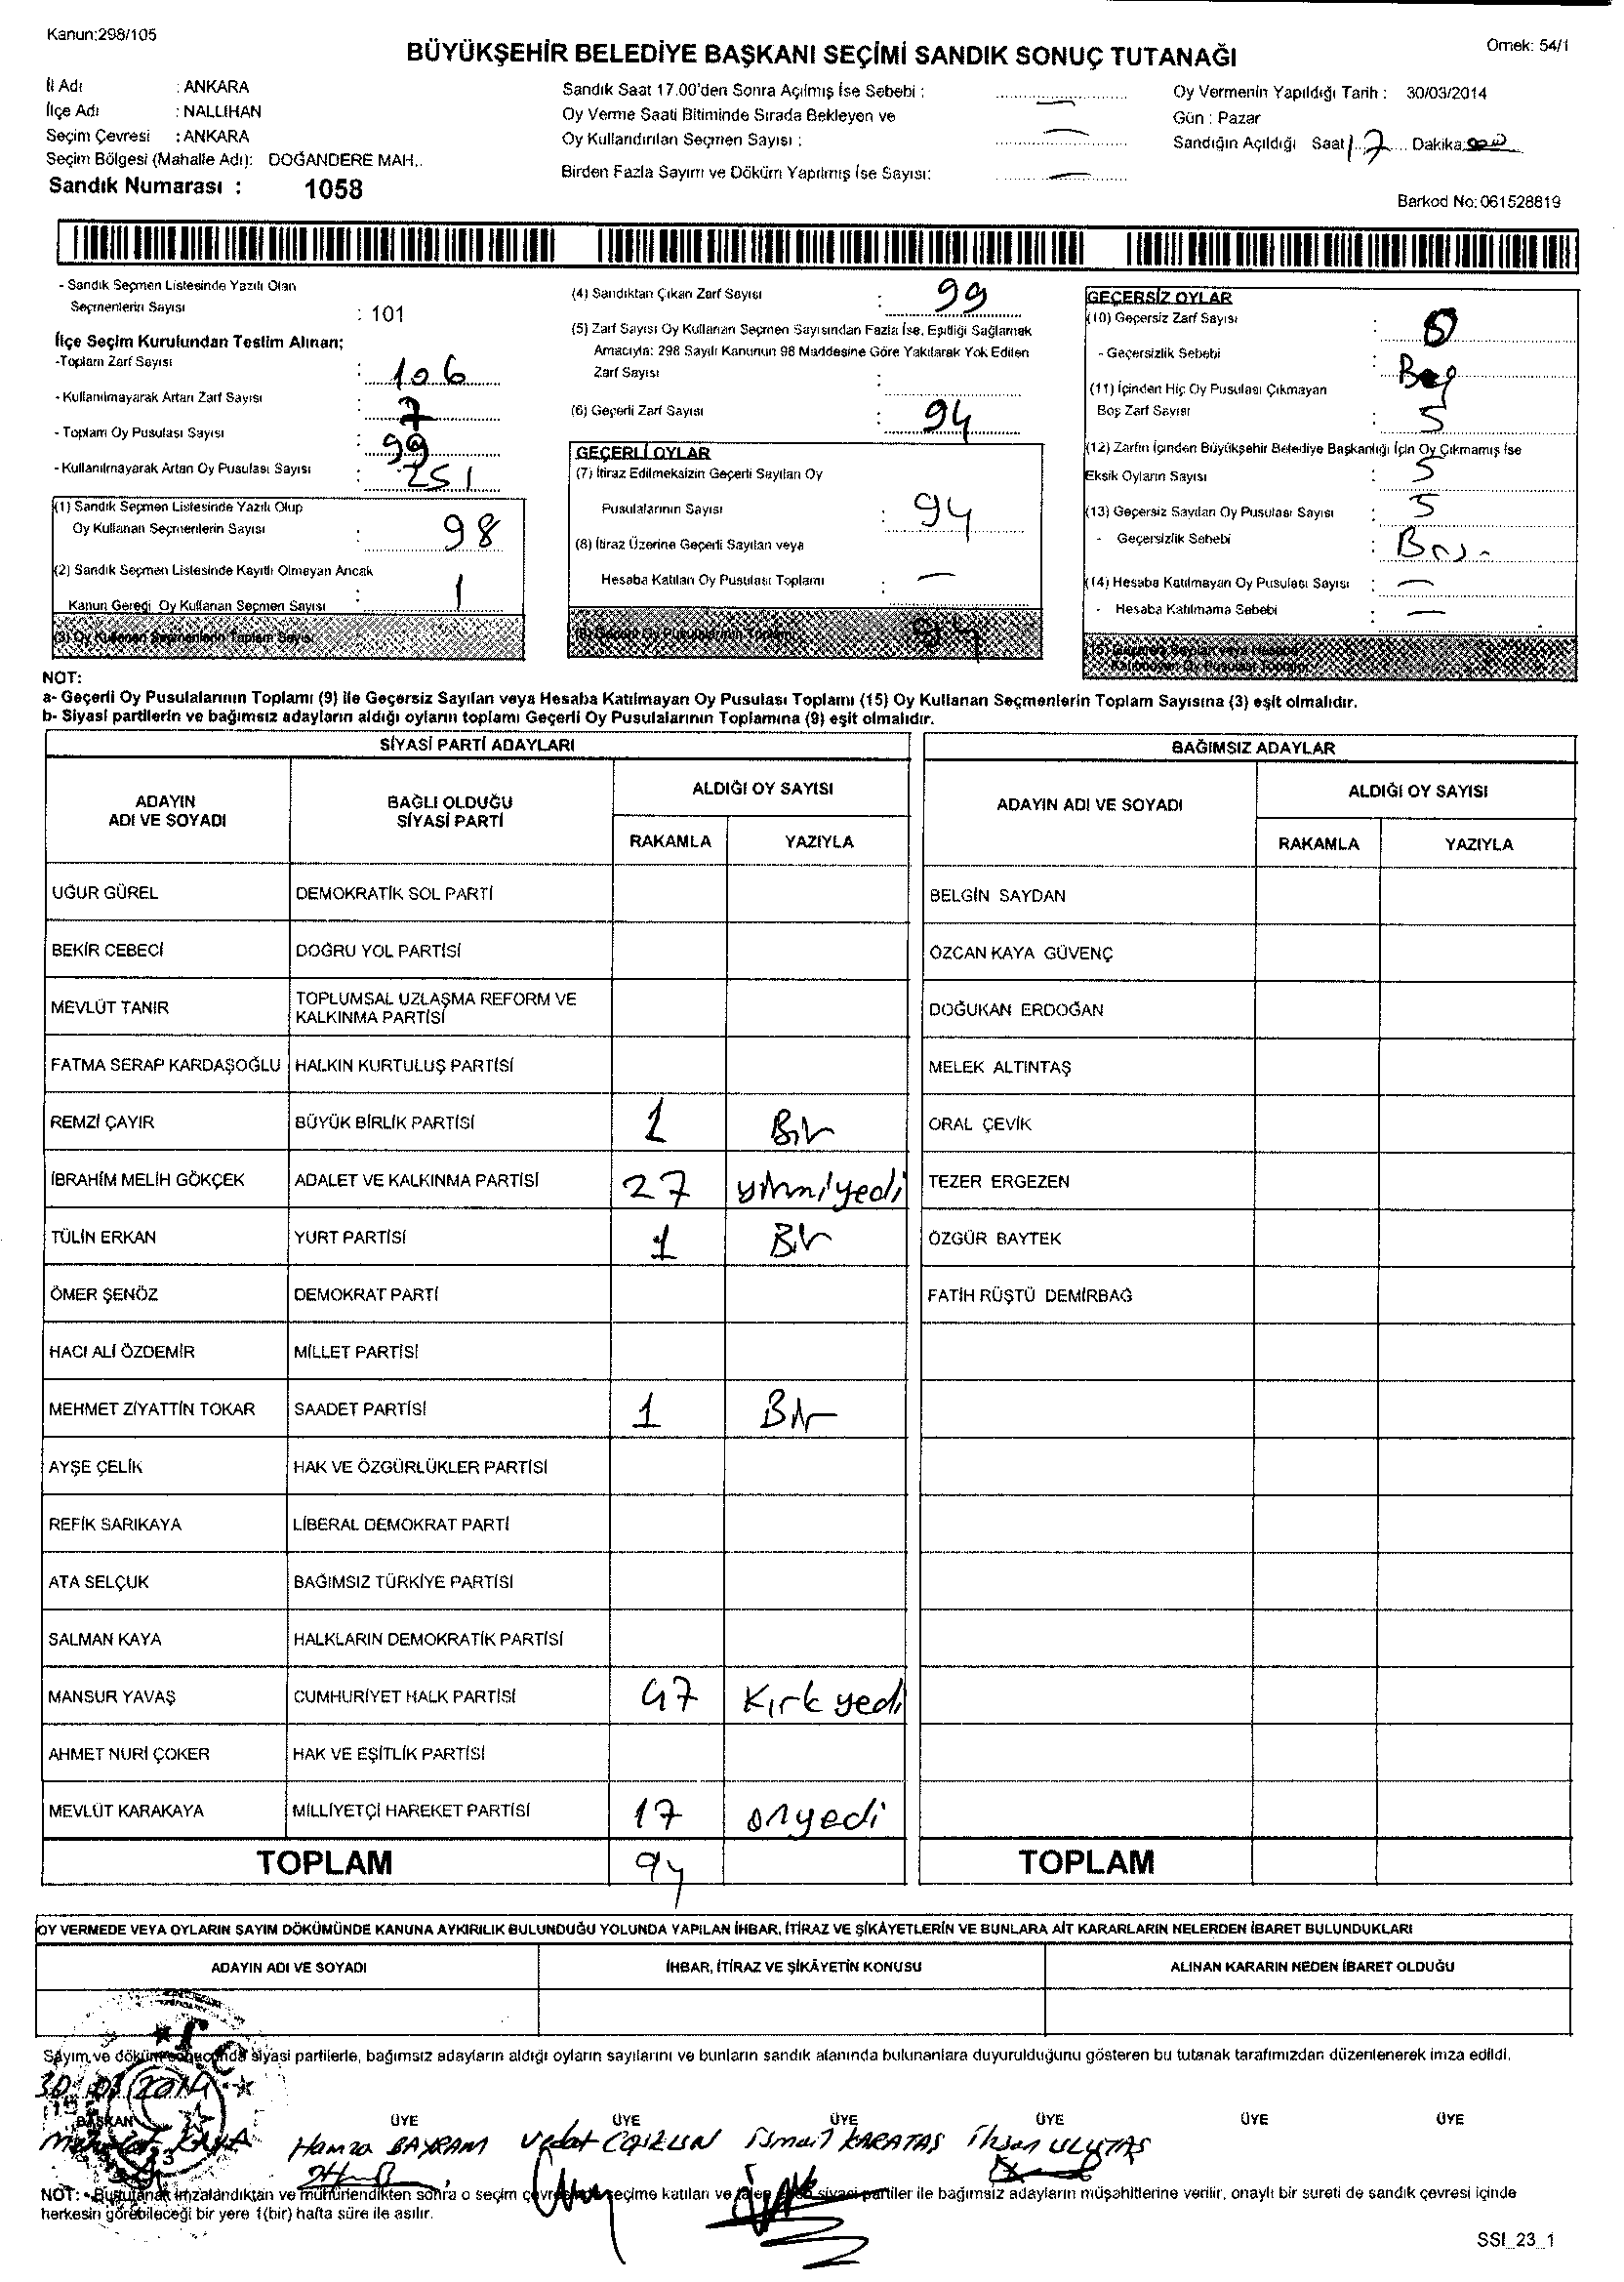 Kanun:298/105
Örnek: 54/1
BÜYÜKŞEHİR BELEDİYE BAŞKANI SEÇİMİ SANDIK SONUÇ TUTANAĞI
İl Adı : ANKARA
İlçe Adı : NALLIHAN
Seçim Çevresi : ANKARA
Seçim Bölgesi (Mahalle Adı): DOĞANDERE MAH..
Sandık Numarası : 1058
Sandık Saat 17.00'den Sonra Açılmış İse Sebebi : —
Oy Verme Saati Bitiminde Sırada Bekleyen ve
Oy Kullandırılan Seçmen Sayısı : —
Birden Fazla Sayım ve Döküm Yapılmış İse Sayısı: —
Oy Vermenin Yapıldığı Tarih : 30/03/2014
Gün : Pazar
Sandığın Açıldığı Saat 17 Dakika
Barkod No: 061528819
- Sandık Seçmen Listesinde Yazılı Olan
Seçmenlerin Sayısı : 101
İlçe Seçim Kurulundan Teslim Alınan;
-Toplam Zarf Sayısı : 106
- Kullanılmayarak Artan Zarf Sayısı : 7
- Toplam Oy Pusulası Sayısı : 99
- Kullanılmayarak Artan Oy Pusulası Sayısı : 251
(1) Sandık Seçmen Listesinde Yazılı Olup
Oy Kullanan Seçmenlerin Sayısı : 98
(2) Sandık Seçmen Listesinde Kayıtlı Olmayan Ancak
Kanun Gereği Oy Kullanan Seçmen Sayısı : 1
(3) Oy Kullanan Seçmenlerin Toplam Sayısı
(4) Sandıktan Çıkan Zarf Sayısı : 99
(5) Zarf Sayısı Oy Kullanan Seçmen Sayısından Fazla İse, Eşitliği Sağlamak
Amacıyla: 298 Sayılı Kanunun 98 Maddesine Göre Yakılarak Yok Edilen
Zarf Sayısı :
(6) Geçerli Zarf Sayısı : 94
GEÇERLİ OYLAR
(7) İtiraz Edilmeksizin Geçerli Sayılan Oy
Pusulalarının Sayısı : 94
(8) İtiraz Üzerine Geçerli Sayılan veya
Hesaba Katılan Oy Pusulası Toplamı : —
(9) Geçerli Oy Pusulalarının Toplamı 94
GEÇERSİZ OYLAR
(10) Geçersiz Zarf Sayısı : 0
- Geçersizlik Sebebi : Boş
(11) İçinden Hiç Oy Pusulası Çıkmayan
Boş Zarf Sayısı : 5
(12) Zarfın İçinden Büyükşehir Belediye Başkanlığı İçin Oy Çıkmamış İse
Eksik Oyların Sayısı : 5
(13) Geçersiz Sayılan Oy Pusulası Sayısı : 5
- Geçersizlik Sebebi : Boş.
(14) Hesaba Katılmayan Oy Pusulası Sayısı : —
- Hesaba Katılmama Sebebi : —
(15) Geçersiz Sayılan veya Hesaba
Katılmayan Oy Pusulası Toplamı
NOT:
a- Geçerli Oy Pusulalarının Toplamı (9) ile Geçersiz Sayılan veya Hesaba Katılmayan Oy Pusulası Toplamı (15) Oy Kullanan Seçmenlerin Toplam Sayısına (3) eşit olmalıdır.
b- Siyasi partilerin ve bağımsız adayların aldığı oyların toplamı Geçerli Oy Pusulalarının Toplamına (9) eşit olmalıdır.
SİYASİ PARTİ ADAYLARI
ADAYIN ADI VE SOYADI
BAĞLI OLDUĞU SİYASİ PARTİ
ALDIĞI OY SAYISI
RAKAMLA YAZIYLA
UĞUR GÜREL DEMOKRATİK SOL PARTİ
BEKİR CEBECİ DOĞRU YOL PARTİSİ
MEVLÜT TANIR TOPLUMSAL UZLAŞMA REFORM VE KALKINMA PARTİSİ
FATMA SERAP KARDAŞOĞLU HALKIN KURTULUŞ PARTİSİ
REMZİ ÇAYIR BÜYÜK BİRLİK PARTİSİ 1 Bir
İBRAHİM MELİH GÖKÇEK ADALET VE KALKINMA PARTİSİ 27 yirmiyedi
TÜLİN ERKAN YURT PARTİSİ 1 Bir
ÖMER ŞENÖZ DEMOKRAT PARTİ
HACI ALİ ÖZDEMİR MİLLET PARTİSİ
MEHMET ZİYATTİN TOKAR SAADET PARTİSİ 1 Bir
AYŞE ÇELİK HAK VE ÖZGÜRLÜKLER PARTİSİ
REFİK SARIKAYA LİBERAL DEMOKRAT PARTİ
ATA SELÇUK BAĞIMSIZ TÜRKİYE PARTİSİ
SALMAN KAYA HALKLARIN DEMOKRATİK PARTİSİ
MANSUR YAVAŞ CUMHURİYET HALK PARTİSİ 47 Kırk yedi
AHMET NURİ ÇOKER HAK VE EŞİTLİK PARTİSİ
MEVLÜT KARAKAYA MİLLİYETÇİ HAREKET PARTİSİ 17 onyedi
TOPLAM 94
BAĞIMSIZ ADAYLAR
ADAYIN ADI VE SOYADI
ALDIĞI OY SAYISI
RAKAMLA YAZIYLA
BELGİN SAYDAN
ÖZCAN KAYA GÜVENÇ
DOĞUKAN ERDOĞAN
MELEK ALTINTAŞ
ORAL ÇEVİK
TEZER ERGEZEN
ÖZGÜR BAYTEK
FATİH RÜŞTÜ DEMİRBAĞ
TOPLAM
OY VERMEDE VEYA OYLARIN SAYIM DÖKÜMÜNDE KANUNA AYKIRILIK BULUNDUĞU YOLUNDA YAPILAN İHBAR, İTİRAZ VE ŞİKÂYETLERİN VE BUNLARA AİT KARARLARIN NELERDEN İBARET BULUNDUKLARI
ADAYIN ADI VE SOYADI İHBAR, İTİRAZ VE ŞİKÂYETİN KONUSU ALINAN KARARIN NEDEN İBARET OLDUĞU
Sayım ve döküm sonucunda siyasi partilerle, bağımsız adayların aldığı oyların sayılarını ve bunların sandık alanında bulunanlara duyurulduğunu gösteren bu tutanak tarafımızdan düzenlenerek imza edildi.
30/03/2014
BAŞKAN ÜYE ÜYE ÜYE ÜYE ÜYE ÜYE
KAYA Hamza BAYRAM Vedat İsmail KARATAŞ İhsan ULUTAŞ
NOT: - Bu tutanak imzalandıktan ve mühürlendikten sonra o seçim çevresinde seçime katılan ve siyasi partiler ile bağımsız adayların müşahitlerine verilir, onaylı bir sureti de sandık çevresi içinde
herkesin görebileceği bir yere 1(bir) hafta süre ile asılır.
SSI_23_1